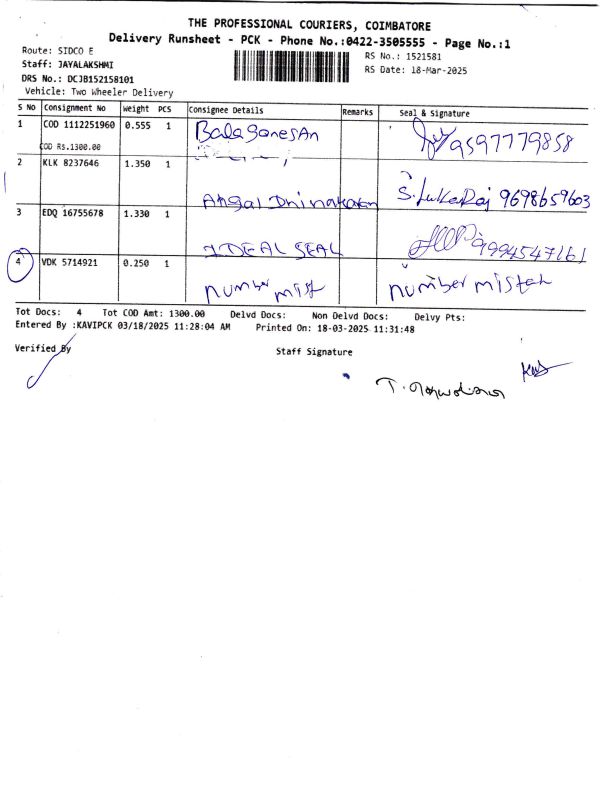 THE PROFESSIONAL COURIERS, COIMBATORE
Delivery Runsheet - PCK - Phone No.:0422-3505555 - Page No.:1
Route: SIDCO E
RS No.: 1521581
Staff: JAYALAKSHMI
RS Date: 18-Mar-2025
DRS No.: DCJB152158101
Vehicle: Two Wheeler Delivery
S No Consignment No Weight PCS Consignee Details Remarks Seal & Signature
1 COD 1112251960 0.555 1 Bala ganesan 9597779858
COD Rs.1300.00
2 KLK 8237646 1.350 1
Angal Dhinakaran S. LukeRaj 9698659603
3 EDQ 16755678 1.330 1
IDEAL SEAL 9994547161
4 VDK 5714921 0.250 1
number mist number mistak
Tot Docs: 4 Tot COD Amt: 1300.00 Delvd Docs: Non Delvd Docs: Delvy Pts:
Entered By :KAVIPCK 03/18/2025 11:28:04 AM Printed On: 18-03-2025 11:31:48
Verified By Staff Signature